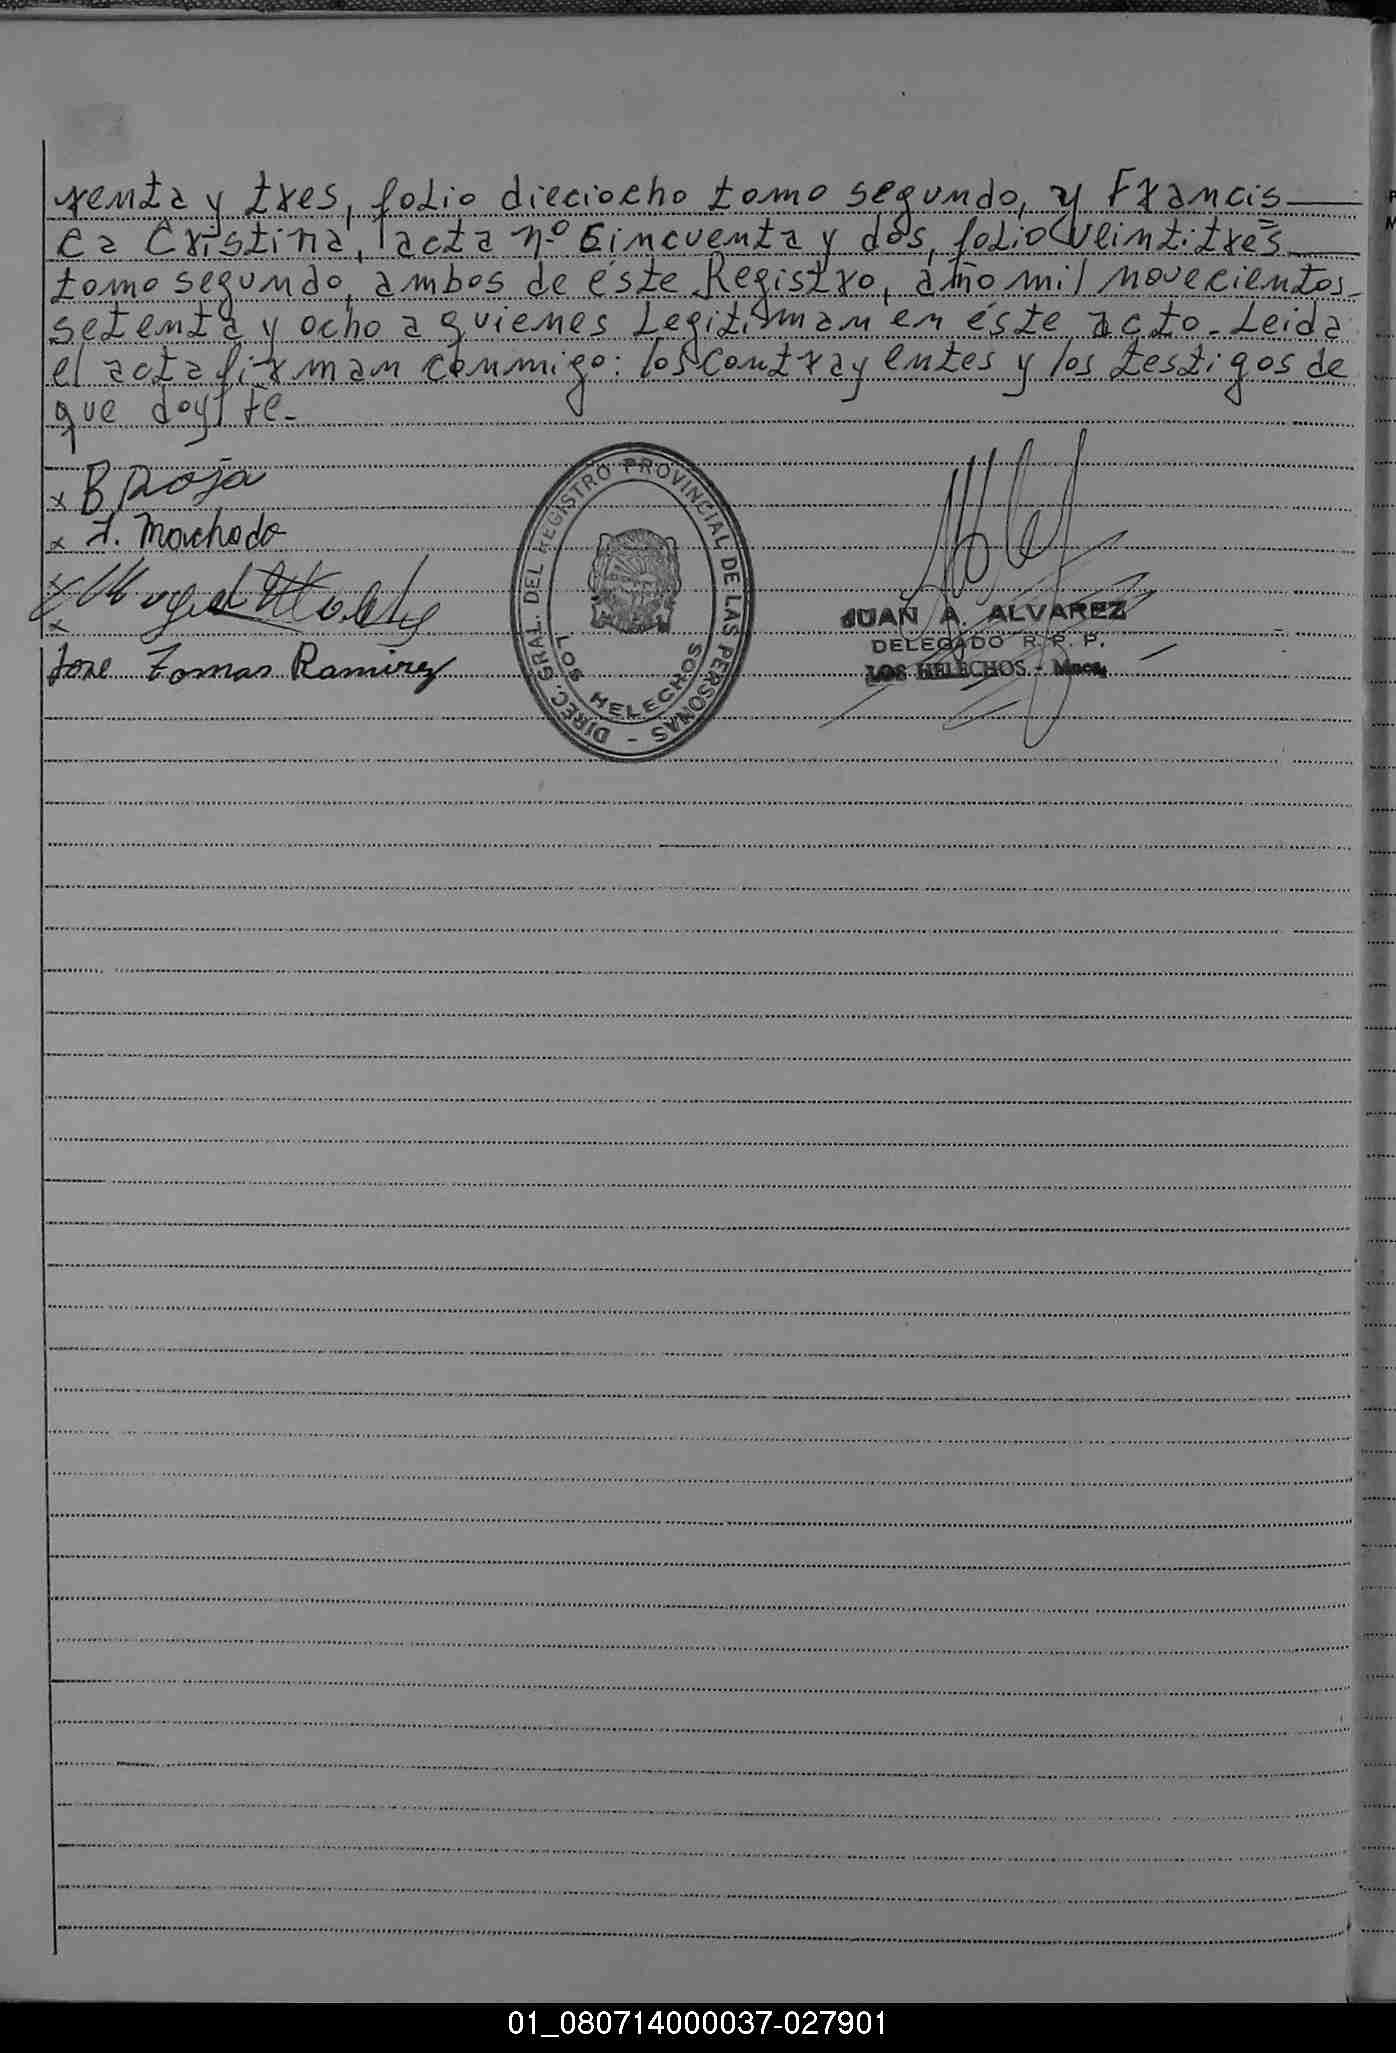 renta y tres, folio dieciocho tomo segundo, y Francis
ca Cristina, acta nº Cincuenta y dos, folio veintitres
tomo segundo, ambos de éste Registro, año mil novecientos
setenta y ocho a quienes Legitiman en éste acto. Leida
el acta firman conmigo: los contrayentes y los testigos de
que doy fé.
x B. Roja
x F. Machado
x
x
Jose Tomas Ramirez
DIREC. GRAL. DEL REGISTRO PROVINCIAL DE LAS PERSONAS -
LOS HELECHOS
JUAN A. ALVAREZ
DELEGADO R. P. P.
LOS HELECHOS - Mnes.
01_080714000037-027901